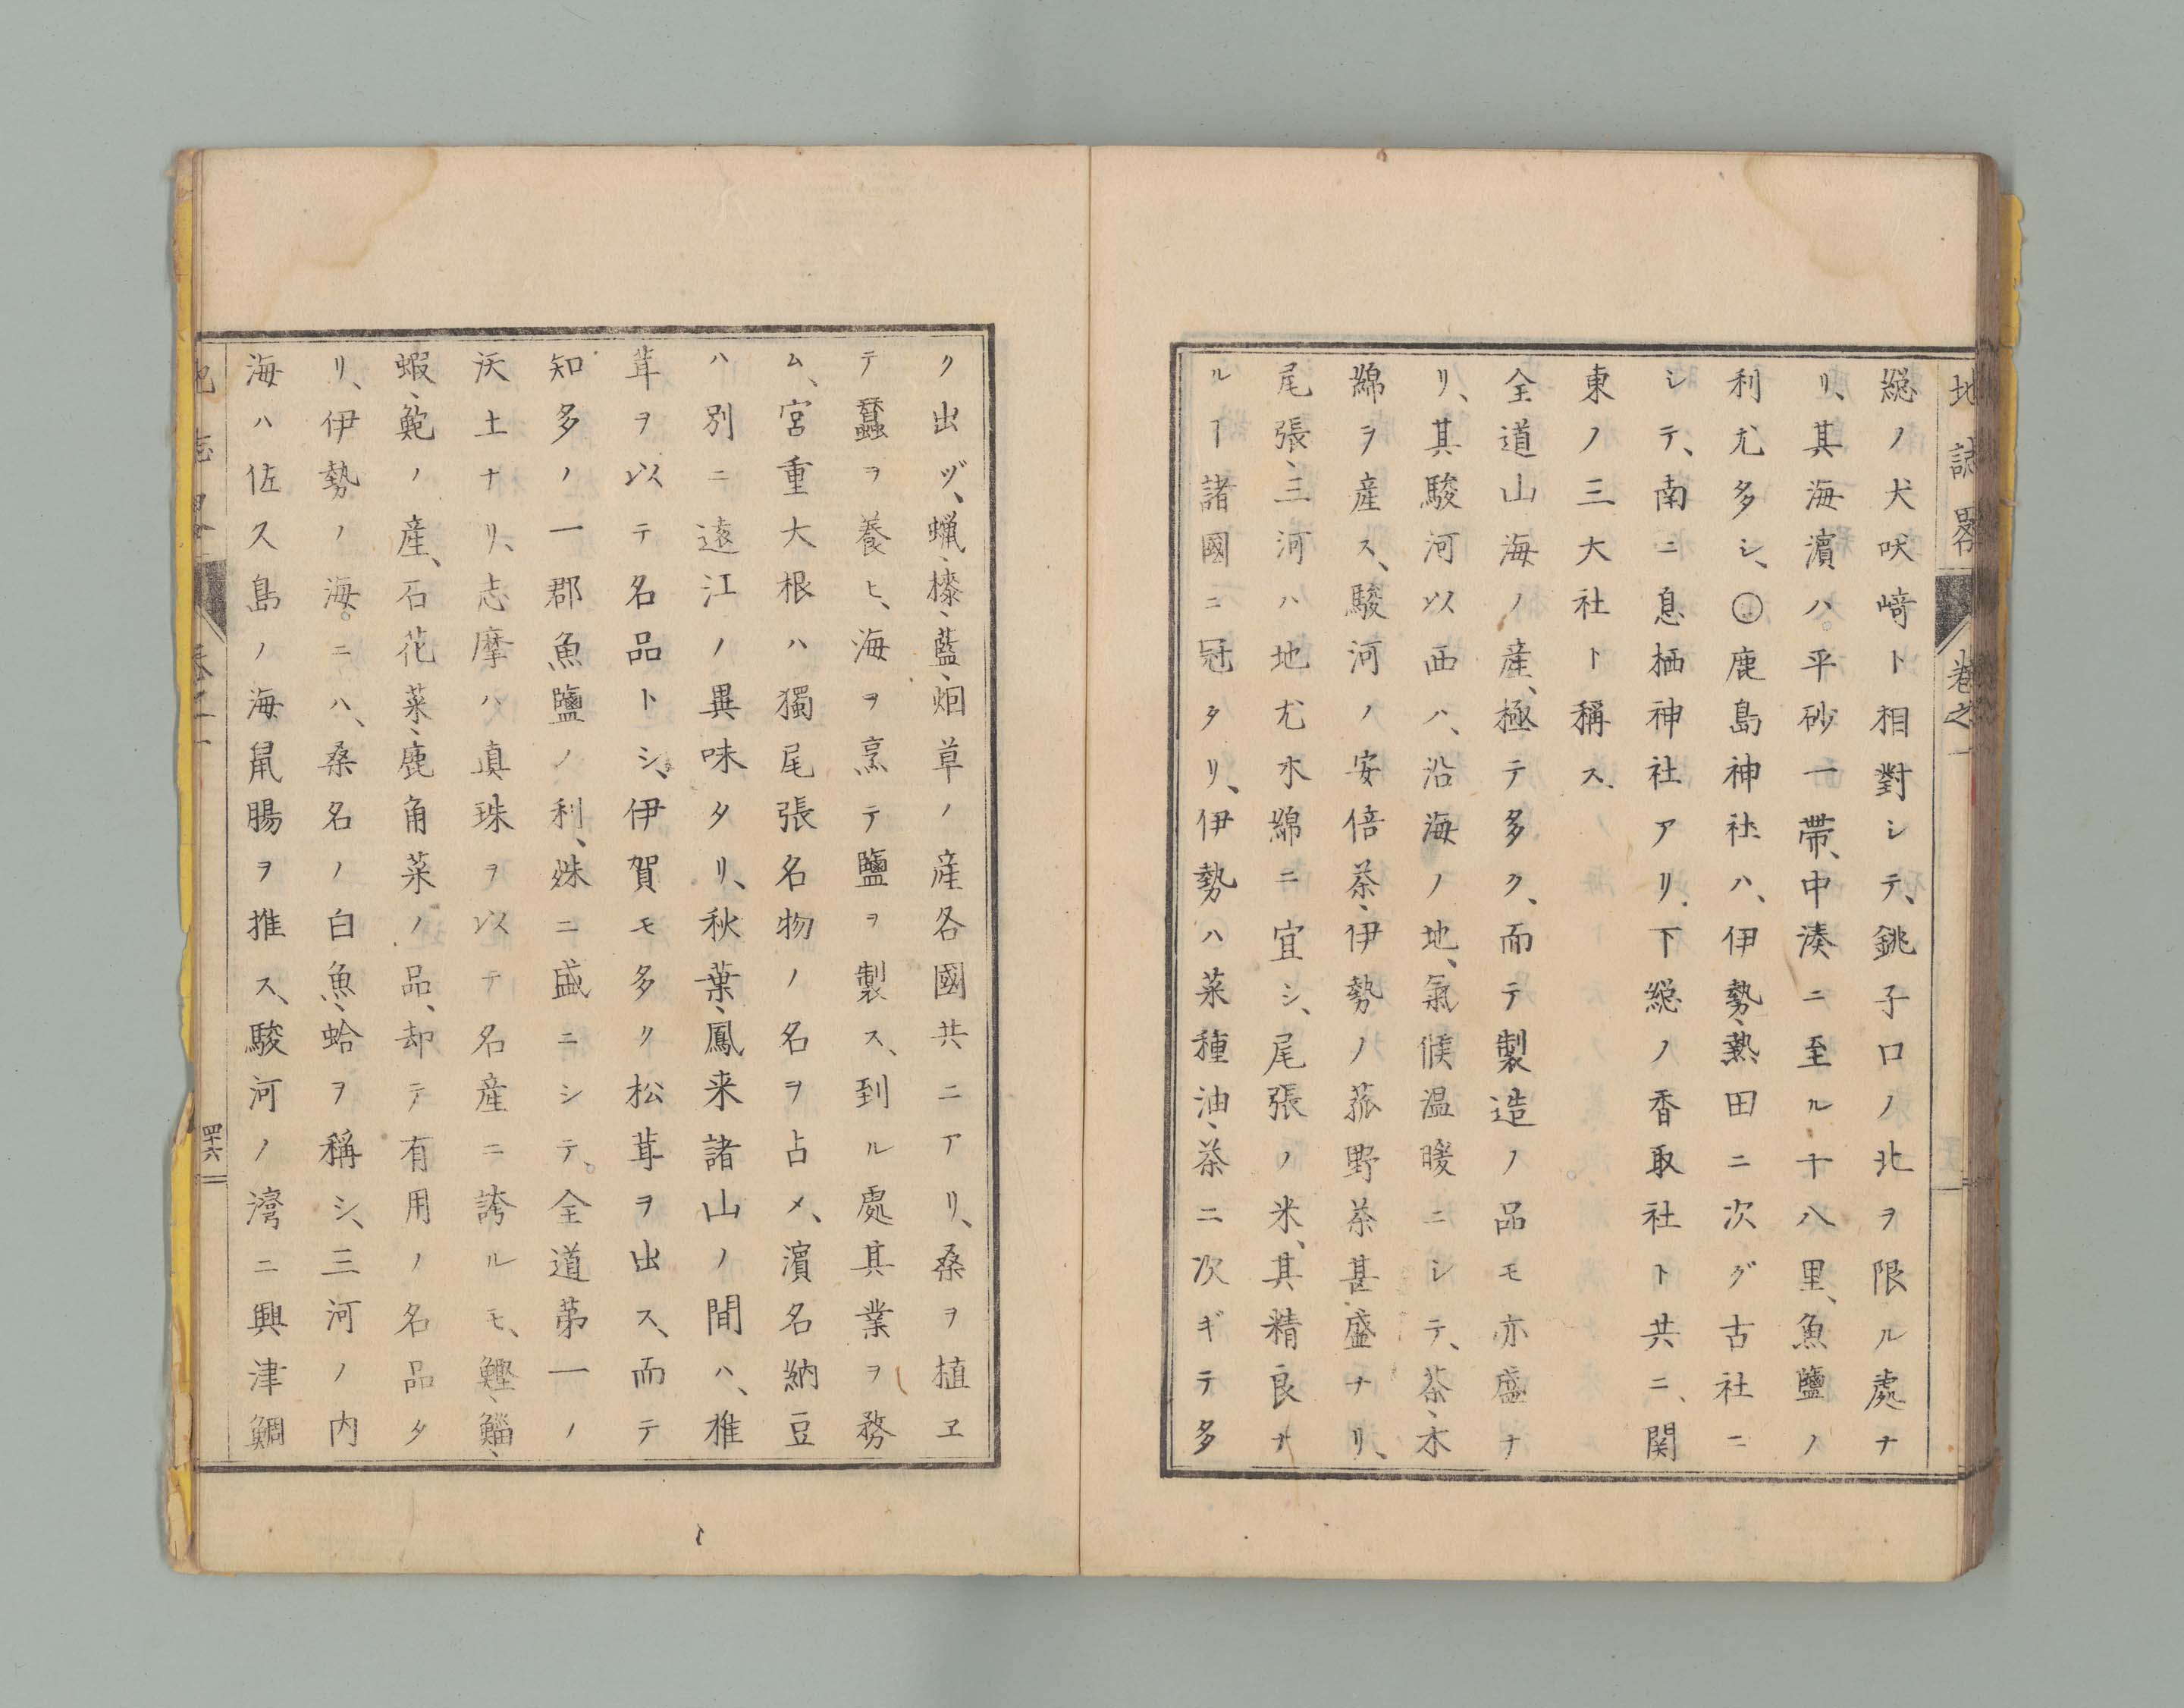 地誌畧 卷之一
総ノ犬吠﨑ト相對シテ、銚子口ノ北ヲ限ル處ナ
リ、其海濵ハ。平砂一帶、中湊ニ至ル十八里、魚鹽ノ
利尤多シ、〇鹿島神社ハ、伊勢、熱田ニ次グ古社ニ
シテ、南ニ息栖神社アリ、下総ノ香取社ト共ニ、関
東ノ三大社ト稱ス
全道山海ノ産、極テ多ク、而テ製造ノ品モ亦盛ナ
リ、其駿河以西ハ、沿海ノ地、氣候温暖ニシテ、茶、木
綿ヲ産ス、駿河ノ安倍茶、伊勢ノ菰野茶甚盛ナリ、
尾張、三河ハ地尤木綿ニ宜シ、尾張ノ米、其精良ナ
ルヿ諸國ニ冠タリ、伊勢ハ菜種油、茶ニ次ギテ多
ク出ヅ、蝋、榛、藍、烟草ノ産各國共ニアリ、桑ヲ植ヱ
テ蠶ヲ養ヒ、海ヲ烹テ鹽ヲ製ス、到ル處其業ヲ務
ム、宮重大根ハ獨尾張名物ノ名ヲ占メ、濵名納豆
ハ別ニ遠江ノ異味タリ、秋葉、鳳来諸山ノ間ハ、椎
茸ヲ以テ名品トシ、伊賀モ多ク松茸ヲ出ス、而テ
知多ノ一郡魚鹽ノ利、殊ニ盛ニシテ。全道第一ノ
沃土ナリ、志摩ハ真珠ヲ以テ名産ニ誇ルモ、鰹、鯔、
蝦、鮑ノ産、石花菜、鹿角菜ノ品、却テ有用ノ名品タ
リ、伊勢ノ海。ニハ、桑名ノ白魚、蛤ヲ稱シ、三河ノ内
海ハ佐ス島ノ海鼠腸ヲ推ス、駿河ノ灣ニ興津鯛
四十六